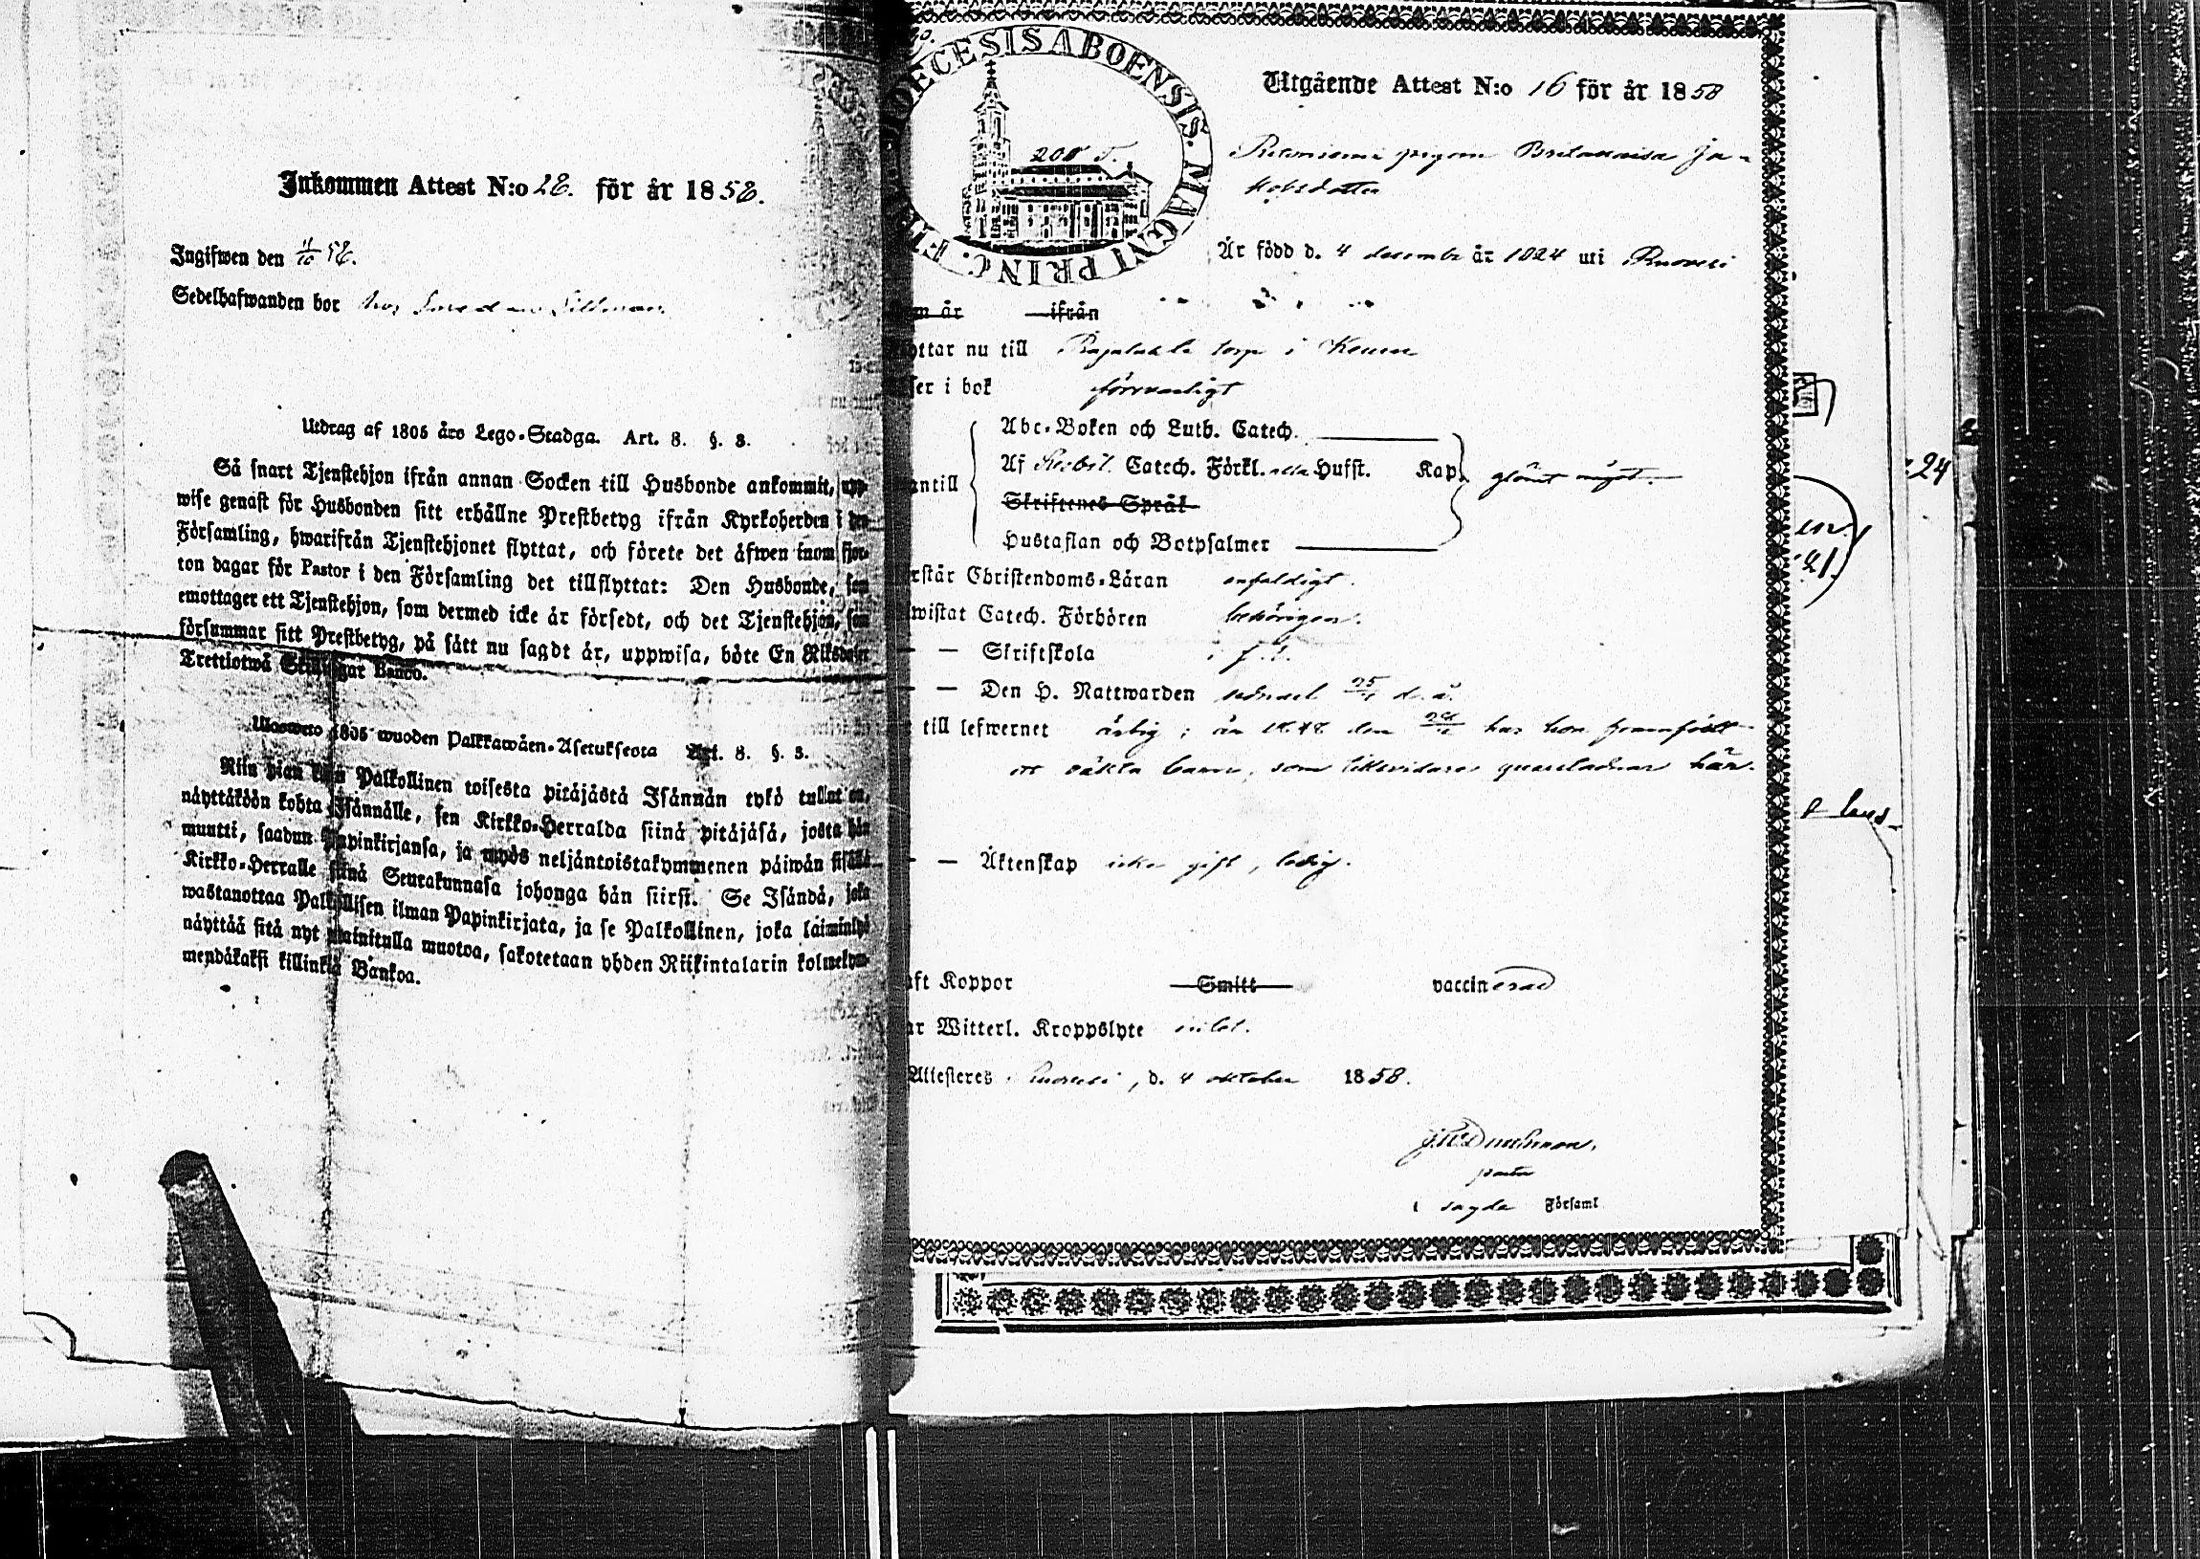 Inkommen Attest N:o 28. för år 1858.
Ingifwen den 11/10 58.
Sedelhafwanden bor hos
Utdrag af 1805 års Lego-Stadga. Art. 8. §. 3.
Så snart Tjenstehjon ifrån annan Socken till Husbonde ankommit, upp-
wise genast för Husbonden sitt erhållne Prestbetyg ifrån Kyrkoherden i den
Församling, hwarifrån Tjenstehjonet flyttat, och förete det äfwen inom fjor-
ton dagar för Pastor i den Församling det tillflyttat: Den Husbonde, som
emottager ett Tjenstehjon, som dermed icke är försedt, och det Tjenstehjon, som
försummar sitt Prestbetyg, på sätt nu sagdt är, uppwisa, böte En Riksdaler
Trettiotwå Skillingar Banco.
Ulosweto 1805 wuoden Palkkawäen-Asetuksesta Art. 8. §. 3.
Niin pian kuin Palkollinen toisesta pitäjästä Isännän tykö tullut on,
näyttäköön kohta Isännälle, sen Kirkko-Herralda siinä pitäjäsä, josta hän
muutti, saadun Papinkirjansa, ja myös neljäntoistakymmenen päiwän sisällä
Kirkko-Herralle siinä Seurakunnasa johonga hän siirsi. Se Isändä, joka
wastanottaa Palkollisen ilman Papinkirjata, ja se Palkollinen, joka laiminlyö
näyttää sitä nyt mainitulla muotoa, sakotetaan yhden Riikintalarin kolmekym-
mendäkaksi killinkiä Bankoa.
DIOECESIS ABOENSIS. MAGNI PRINC. F
200 T.
Utgående Attest N:o 16 för år 1858
pigan Ja-
kobsdotter
Är född d. 4 december år 1824 uti Ruovesi
m är ifrån
yttar nu till torp i Keuru
ser i bok försvarligt
Abc-Boken och Luth. Catech.
Af Catech. Förkl. alla Hufst. Kap. glömt något.
antill
Skriftenes Språk
Hustaflan och Botpsalmer
rstår Christendoms-Läran enfaldigt.
wistat Catech. Förhören behörigen.
— — Skriftskola
— — Den H. Nattwarden senast 25/ d. å.
till lefwernet ärlig; år 1848 den har hon framfödt
ett oäkta barn, som tillsvidare qvarladnar här.
— — Äktenskap icke gift, ledig.
aft Koppor Smitt vaccinerad
ar Witterl. Kroppslyte intet.
Attesteres Ruovesi, d. 4 oktober 1858.
pastor
i sagde Församl
24
21.